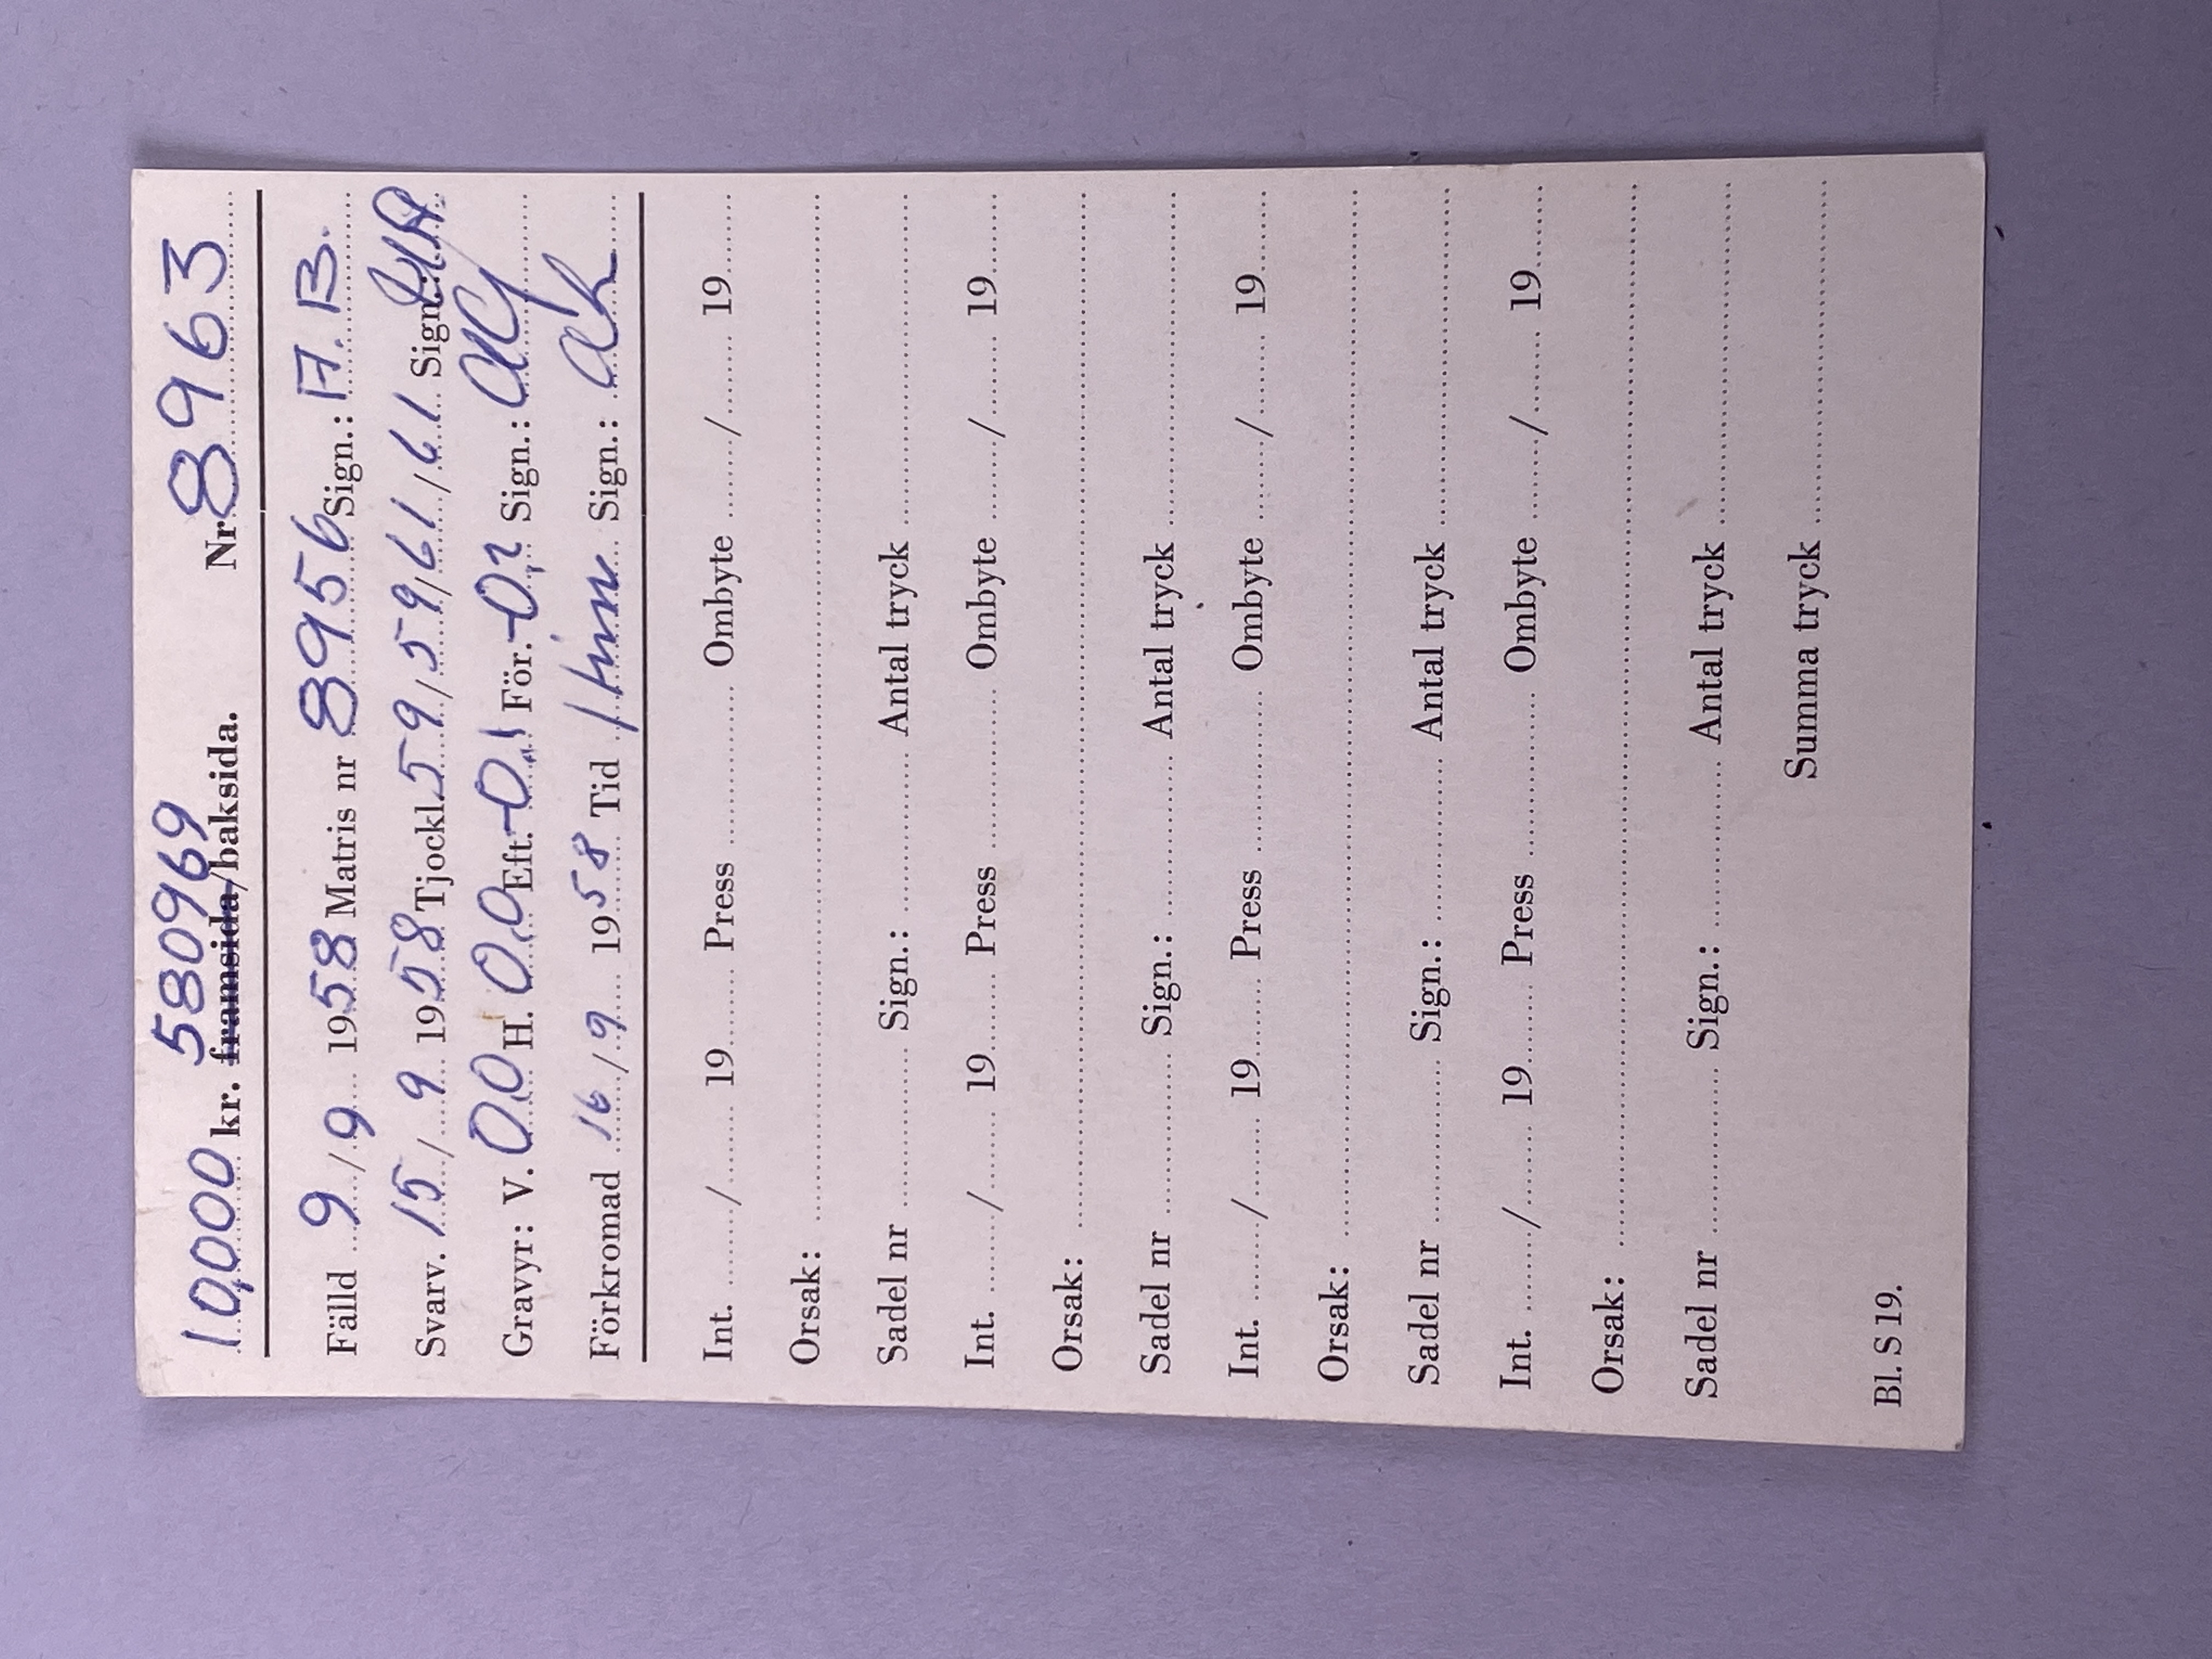 580969
10,000 kr. framsida/baksida. Nr 8963
Fälld 9/9 1958 Matris nr 8956 Sign.: A.B.
Svarv. 15/9 1958 Tjockl. 59/59/61/61 Sign.:
Gravyr: V. 0,0 H. 0,0 Eft. -0,1 För. -0,2 Sign.:
Förkromad 16/9 1958 Tid 1 tim Sign.:
Int. ......../........ 19...... Press ............... Ombyte ......./........ 19......
Orsak: ...............
Sadel nr ............... Sign.: ............... Antal tryck ...............
Int. ......../........ 19...... Press ............... Ombyte ......./........ 19......
Orsak: ...............
Sadel nr ............... Sign.: ............... Antal tryck ...............
Int. ......../........ 19...... Press ............... Ombyte ......./........ 19......
Orsak: ...............
Sadel nr ............... Sign.: ............... Antal tryck ...............
Int. ......../........ 19...... Press ............... Ombyte ......./........ 19......
Orsak: ...............
Sadel nr ............... Sign.: ............... Antal tryck ...............
Summa tryck ...............
Bl. S 19.